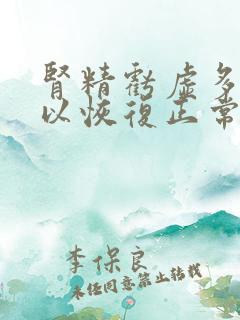 腎精虧虛多
以恢復正常
李保良
未經同意禁止轉載